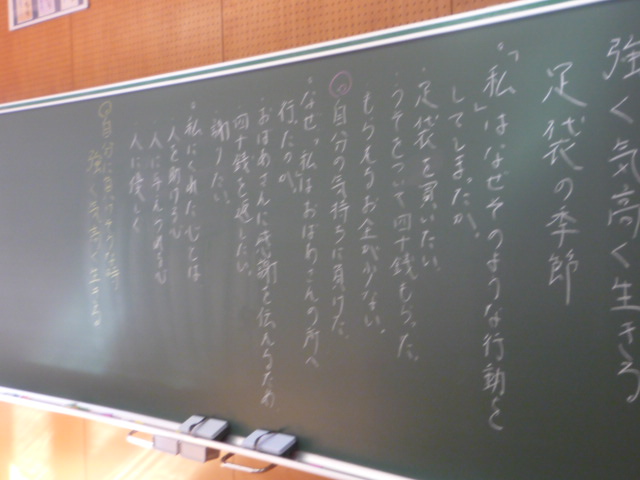 強く気高く生きる
足袋の季節
。「私」はなぜそのような行動を
してしまったか。
・足袋を買いたい。
・うそをついて四十銭もらった。
もらえるお金が少ない。
自分の気持ちに負けた。
。なぜ、「私」はおばあさんの所へ
行ったのか。
・おばあさんに感謝を伝えるため
四十銭を返したい。
・謝りたい。
。私にくれた心とは
人を助ける心
・人に与えつづける心
・人に優しく